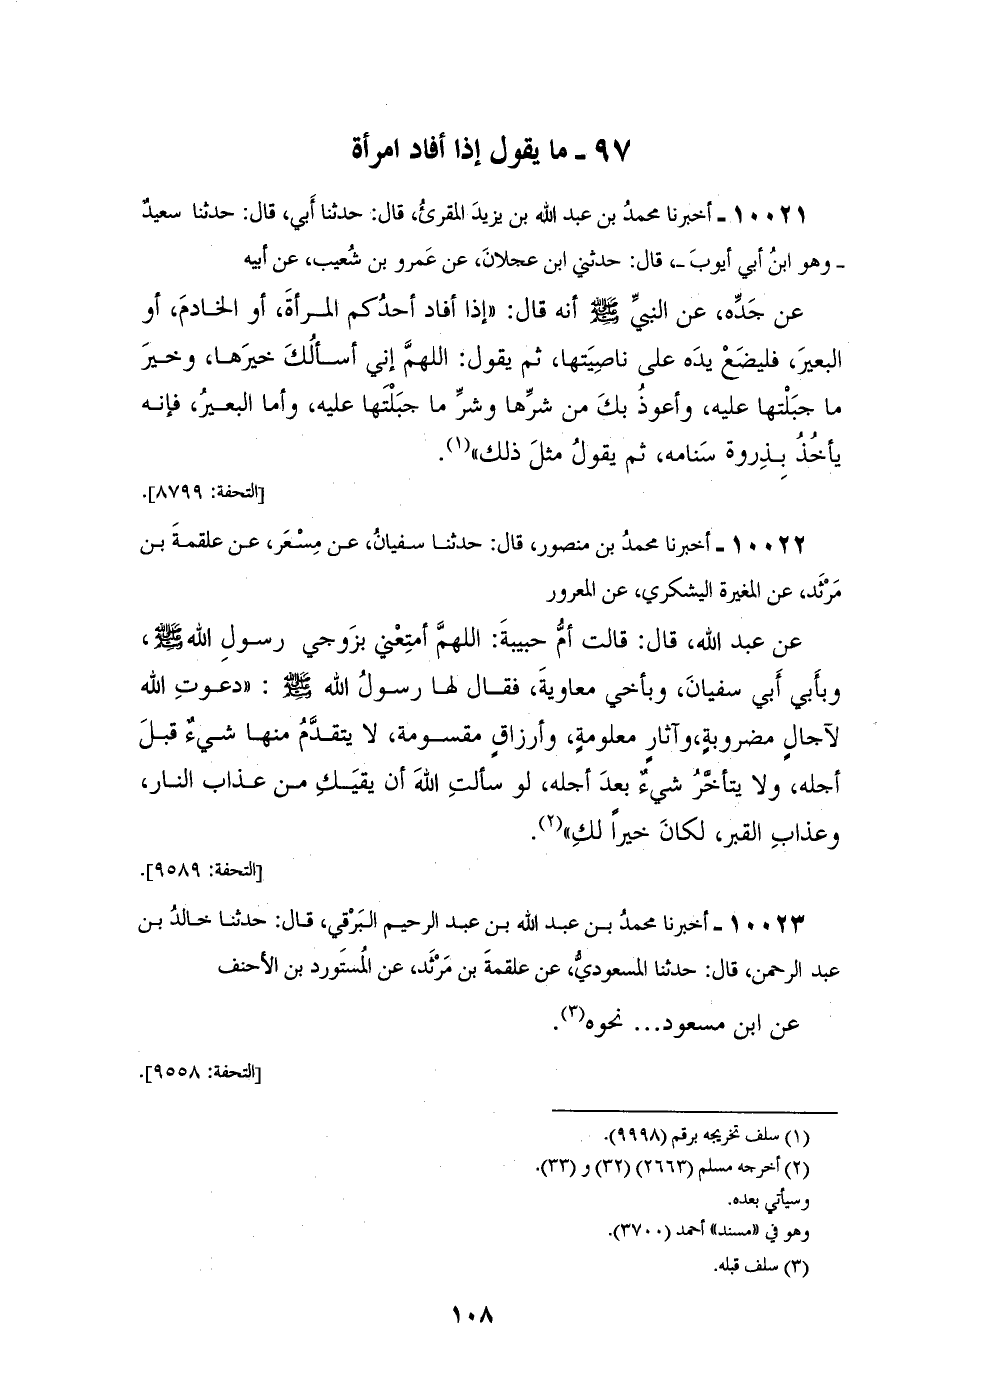 ٩٧ ـ ما يقول إذا أفاد امرأة
١٠٠٢١ ـ أخبرنا محمدُ بن عبد الله بن يزيدَ المقرئُ، قال: حدثنا أَبي، قال: حدثنا سعيدٌ
ـ وهو ابنُ أبي أيوبَ ـ، قال: حدثني ابن عجلانَ، عن عَمرو بن شُعيب، عن أبيه
عن جَدِّه، عن النبيِّ ﷺ أنه قال: «إذا أفاد أحدُكم المـرأةَ، أو الخادمَ، أو
البعيرَ، فليضَعْ يدَه على ناصِيَتها، ثم يقول: اللهمَّ إني أسـألُكَ خيرَهـا، وخـيرَ
ما جبَلْتها عليه، وأعوذُ بكَ من شرِّها وشرِّ ما جبَلْتَها عليه، وأما البعـيرُ، فإنـه
يأخُذُ بـذِروة سَنامه، ثم يقولُ مثلَ ذلك»(١).
[التحفة: ٨٧٩٩].
١٠٠٢٢ ـ أخبرنا محمدُ بن منصور، قال: حدثنـا سفيانُ، عـن مِسْعَر، عـن علقمـةَ بـن
مَرْثَد، عن المغيرة اليشكري، عن المعرور
عن عبد الله، قال: قالت أمُّ حبيبةَ: اللهمَّ أمتِعْني بزَوجي رسـولِ الله ﷺ،
وبأَبي أَبي سفيانَ، وبأخي معاويةَ، فقـال لهـا رسـولُ الله ﷺ : «دعـوتِ الله
لآجالٍ مضروبةٍ،وآثارٍ معلومةٍ، وأرزاقٍ مقسـومة، لا يتقـدَّمُ منهـا شـيءٌ قبـلَ
أجله، ولا يتأخَّرُ شيءٌ بعدَ أجله، لو سألتِ اللهَ أن يقيَـكِ مـن عـذاب النـار،
وعذابِ القبر، لكانَ خيراً لكِ»(٢).
[التحفة: ٩٥٨٩].
١٠٠٢٣ ـ أخبرنا محمدُ بـن عبـد الله بـن عبـد الرحيم الـبَرْقي، قـال: حدثنـا خـالدُ بـن
عبد الرحمن، قال: حدثنا المسعوديُّ، عن علقمةَ بن مَرْثَد، عن المُستَورد بن الأحنف
عن ابن مسعود... نحوه(٣).
[التحفة: ٩٥٥٨].
(١) سلف تخريجه برقم (٩٩٩٨).
(٢) أخرجه مسلم (٢٦٦٣) (٣٢) و (٣٣).
وسيأتي بعده.
وهو في «مسند» أحمد (٣٧٠٠).
(٣) سلف قبله.
١٠٨